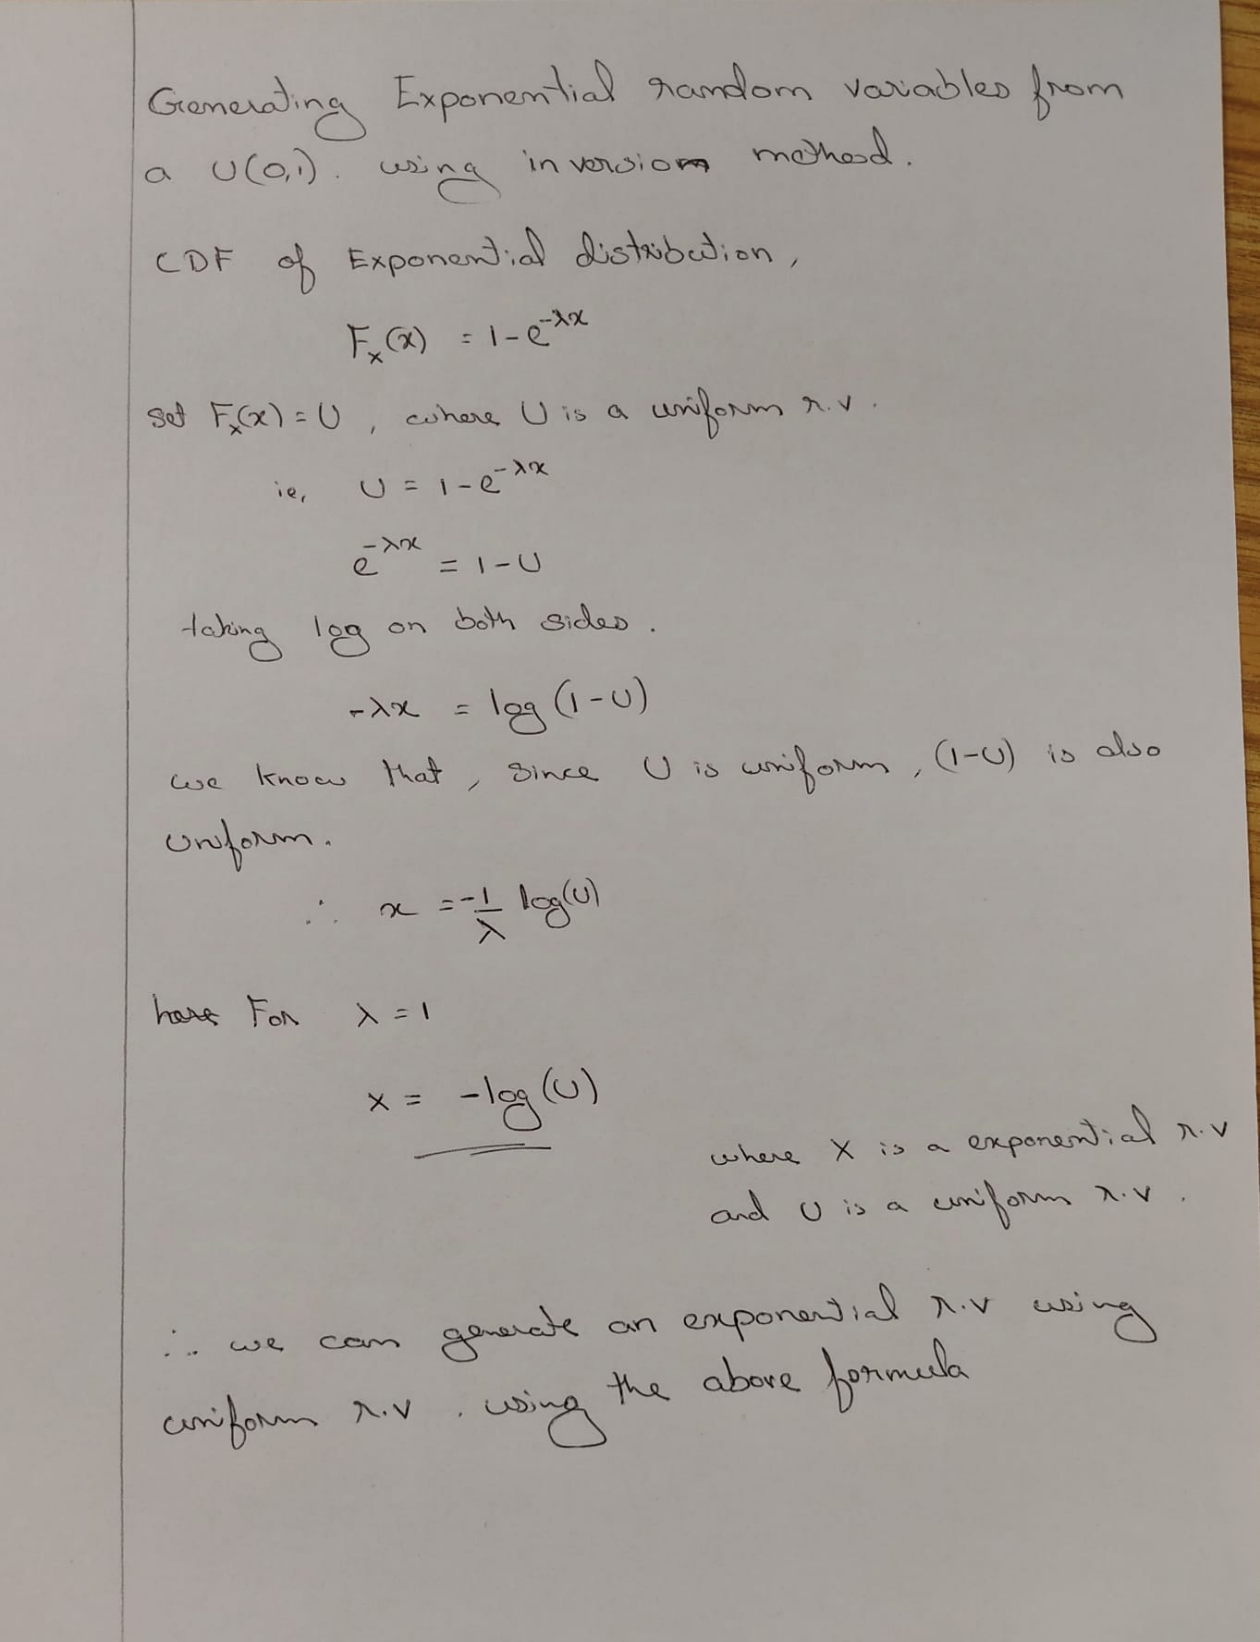 Generating Exponential random variables from
a U(0,1). using inversion method.
CDF of Exponential distribution,
Fₓ(x) = 1-e^-λx
set Fₓ(x) = U , where U is a uniform r.v.
ie, U = 1-e^-λx
e^-λx = 1-U
taking log on both sides.
-λx = log(1-U)
we know that, since U is uniform, (1-U) is also
uniform.
∴ x = -1/λ log(U)
For λ = 1
X = -log(U)
where X is a exponential r.v
and U is a uniform r.v.
∴ we can generate an exponential r.v using
uniform r.v. using the above formula